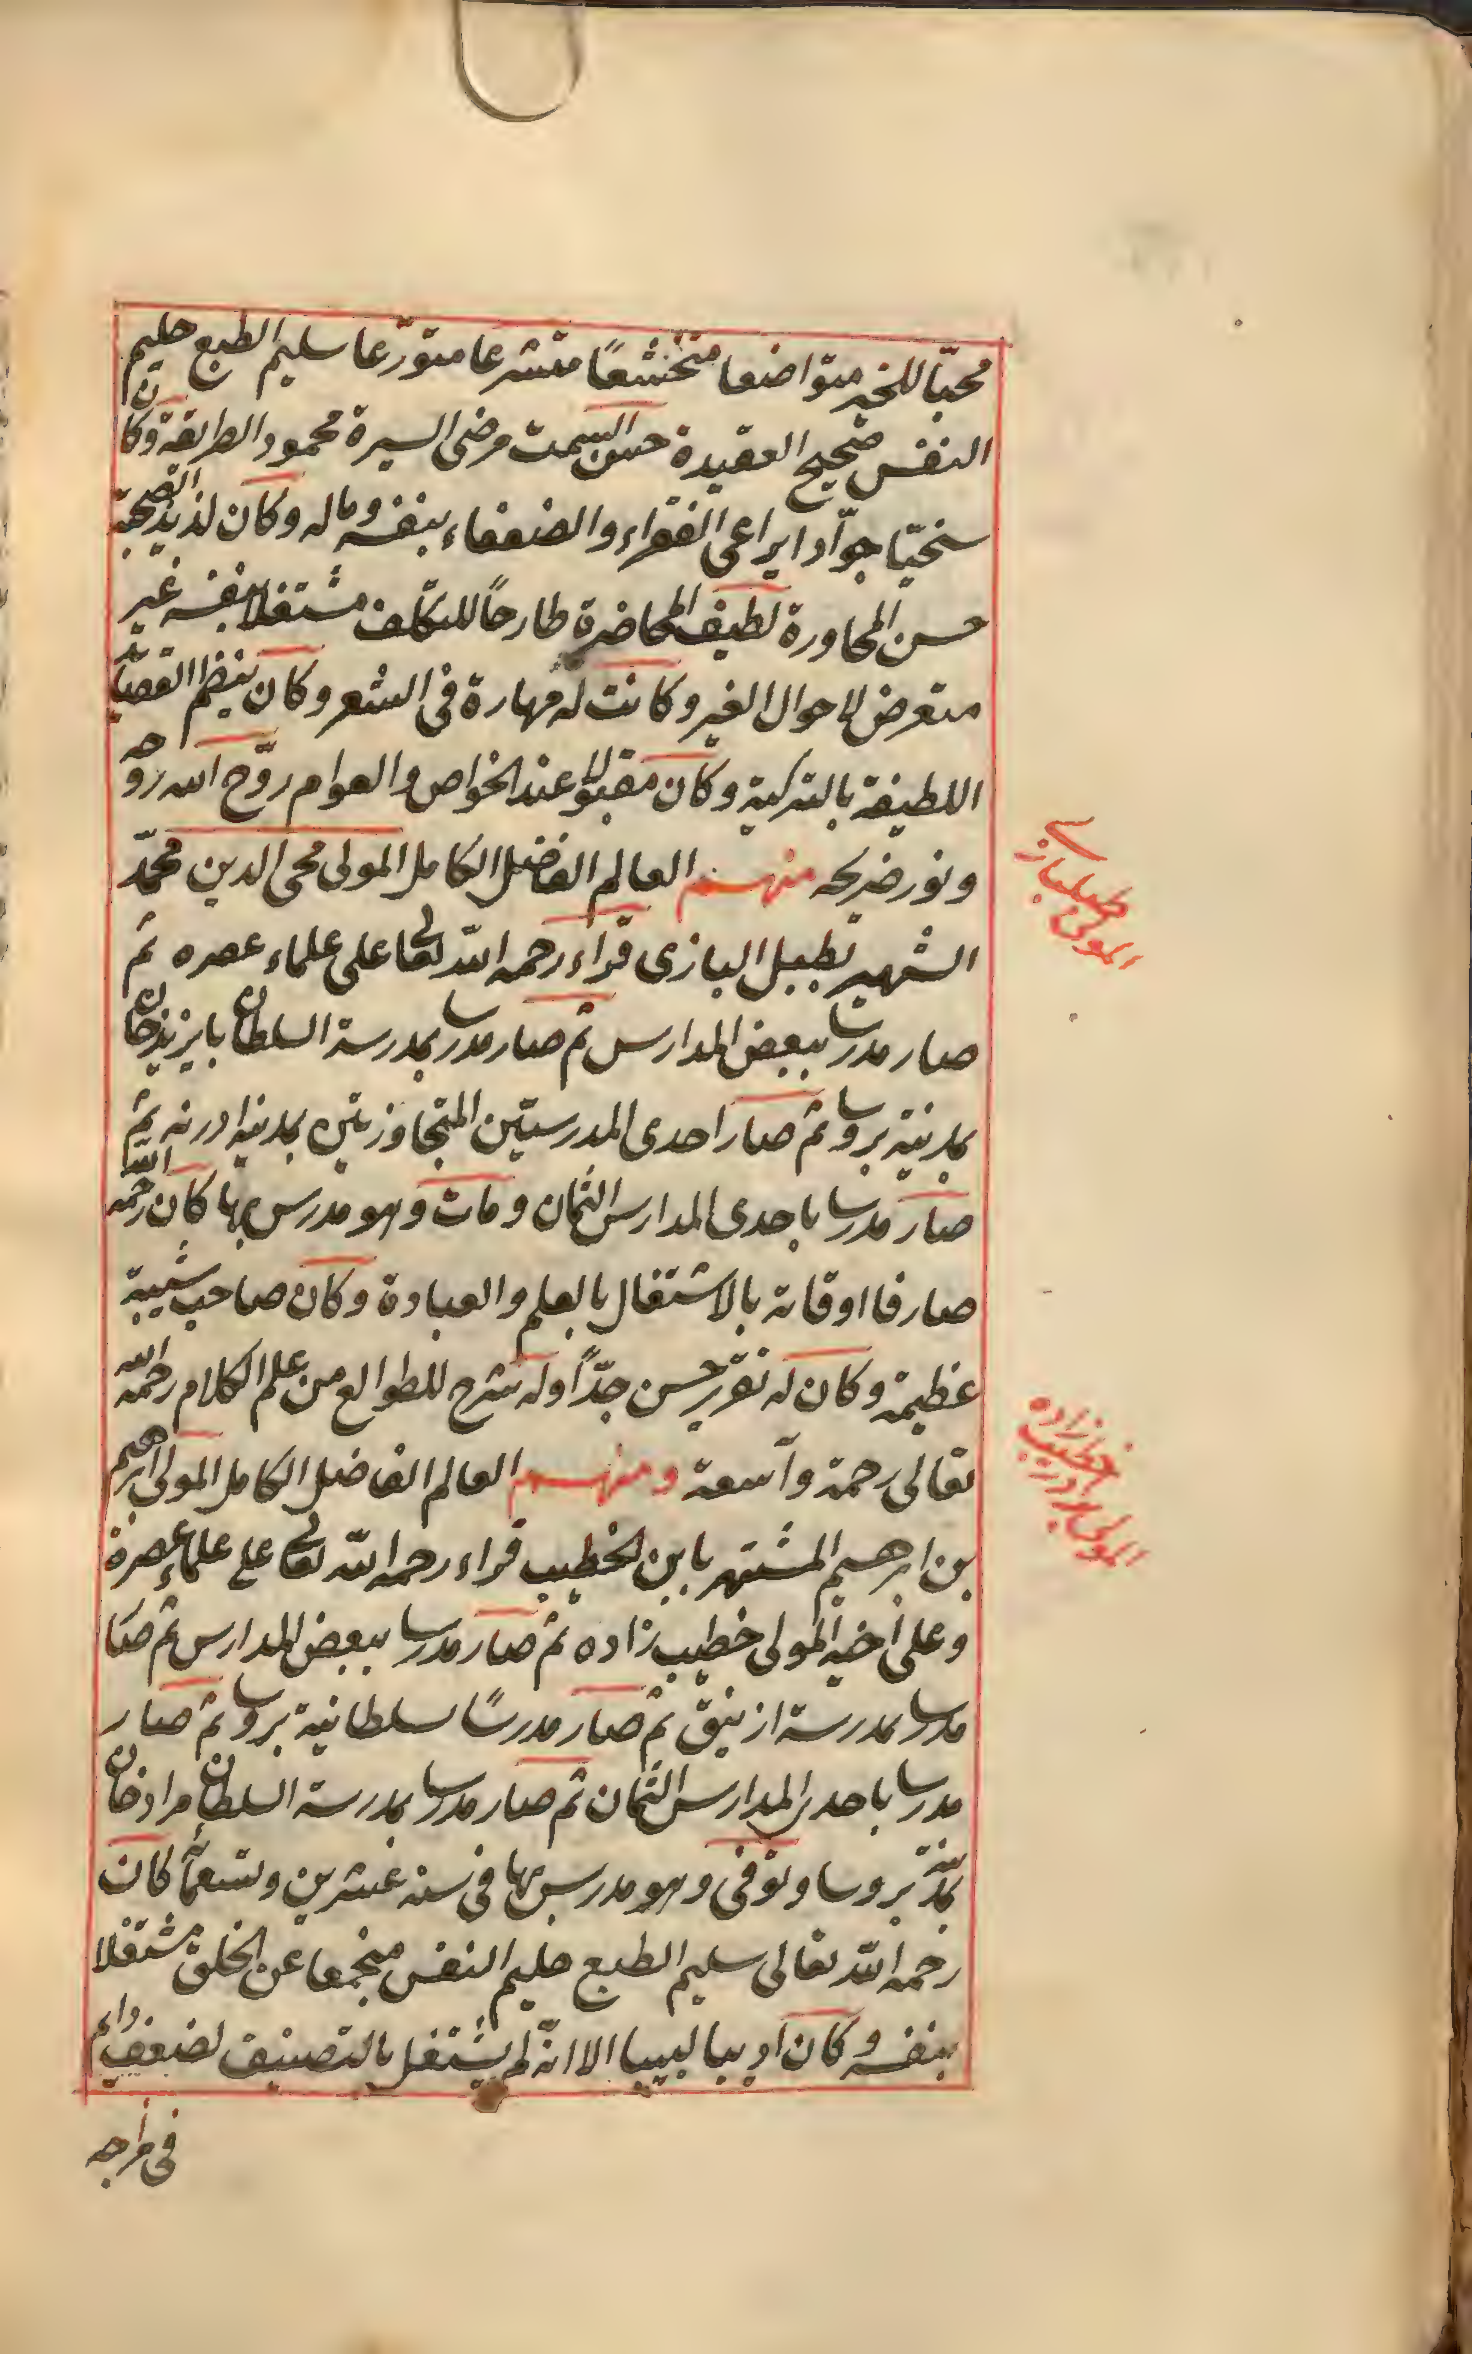 محبّا للخير متواضعا متخشّعًا متشرعا متورّعا سليم الطبع حليم
النفس صحيح العقيدة حسن السمت مرضى السيرة محمود الطريقة وكان
سخيّا جوّادا يراعى الفقراء والضعفاء بنفسه وماله وكان لذيذ الصحبة
حسن المحاورة لطيف المحاضرة طارحاً للتكلّف مشتغلا بنفسه غير
متعرض لاحوال الغير وكانت له مهارة فى الشعر وكان ينظم القصائد
اللطيفة بالتركية وكان مقبولا عند الخواص والعوام روّح الله روحه
ونور ضريحه منهم العالم الفاضل الكامل المولى محى الدين محمّد
الشهير بطبل البازى قراء رحمه الله تعالى على علماء عصره ثم
صار مدرسا ببعض المدارس ثم صار مدرسا بمدرسة السلطان بايزيد خان
بمدينة بروسا ثم صار احدى المدرستين المتجاوزتين بمدينه ادرنه ثم
صار مدرسا باحدى المدارس الثمان ومات وهو مدرس بها كان رحمه الله
صارفا اوقاته بالاشتغال بالعلم والعبادة وكان صاحب شيبة
عظيمة وكان له تقرير حسن جدّاً وله شرح للطوالع من علم الكلام رحمه الله
تعالى رحمة واسعة ومنهم العالم الفاضل الكامل المولى ابرهيم
بن ابرهيم المشتهر بابن الخطيب قراء رحمه الله تعالى على علماء عصره
وعلى اخيه المولى خطيب زاده ثم صار مدرسا ببعض المدارس ثم صار
مدرسا بمدرسة ازنيق ثم صار مدرسًا بسلطانية بروسا ثم صار
مدرسا باحدى المدارس الثمان ثم صار مدرسا بمدرسة السلطان مراد خان
بمدينة بروسا وتوفى وهو مدرس بها فى سنه عشرين وتسعمائة كان
رحمه الله تعالى سليم الطبع حليم النفس منجمعا عن الخلق مشتغلا
بنفسه وكان اديبا لبيبا الا انّه لم يشتغل بالتصنيف لضعف دائم
فى مزاجه
المولى طبلباز
المولى برادر خطيب زاده